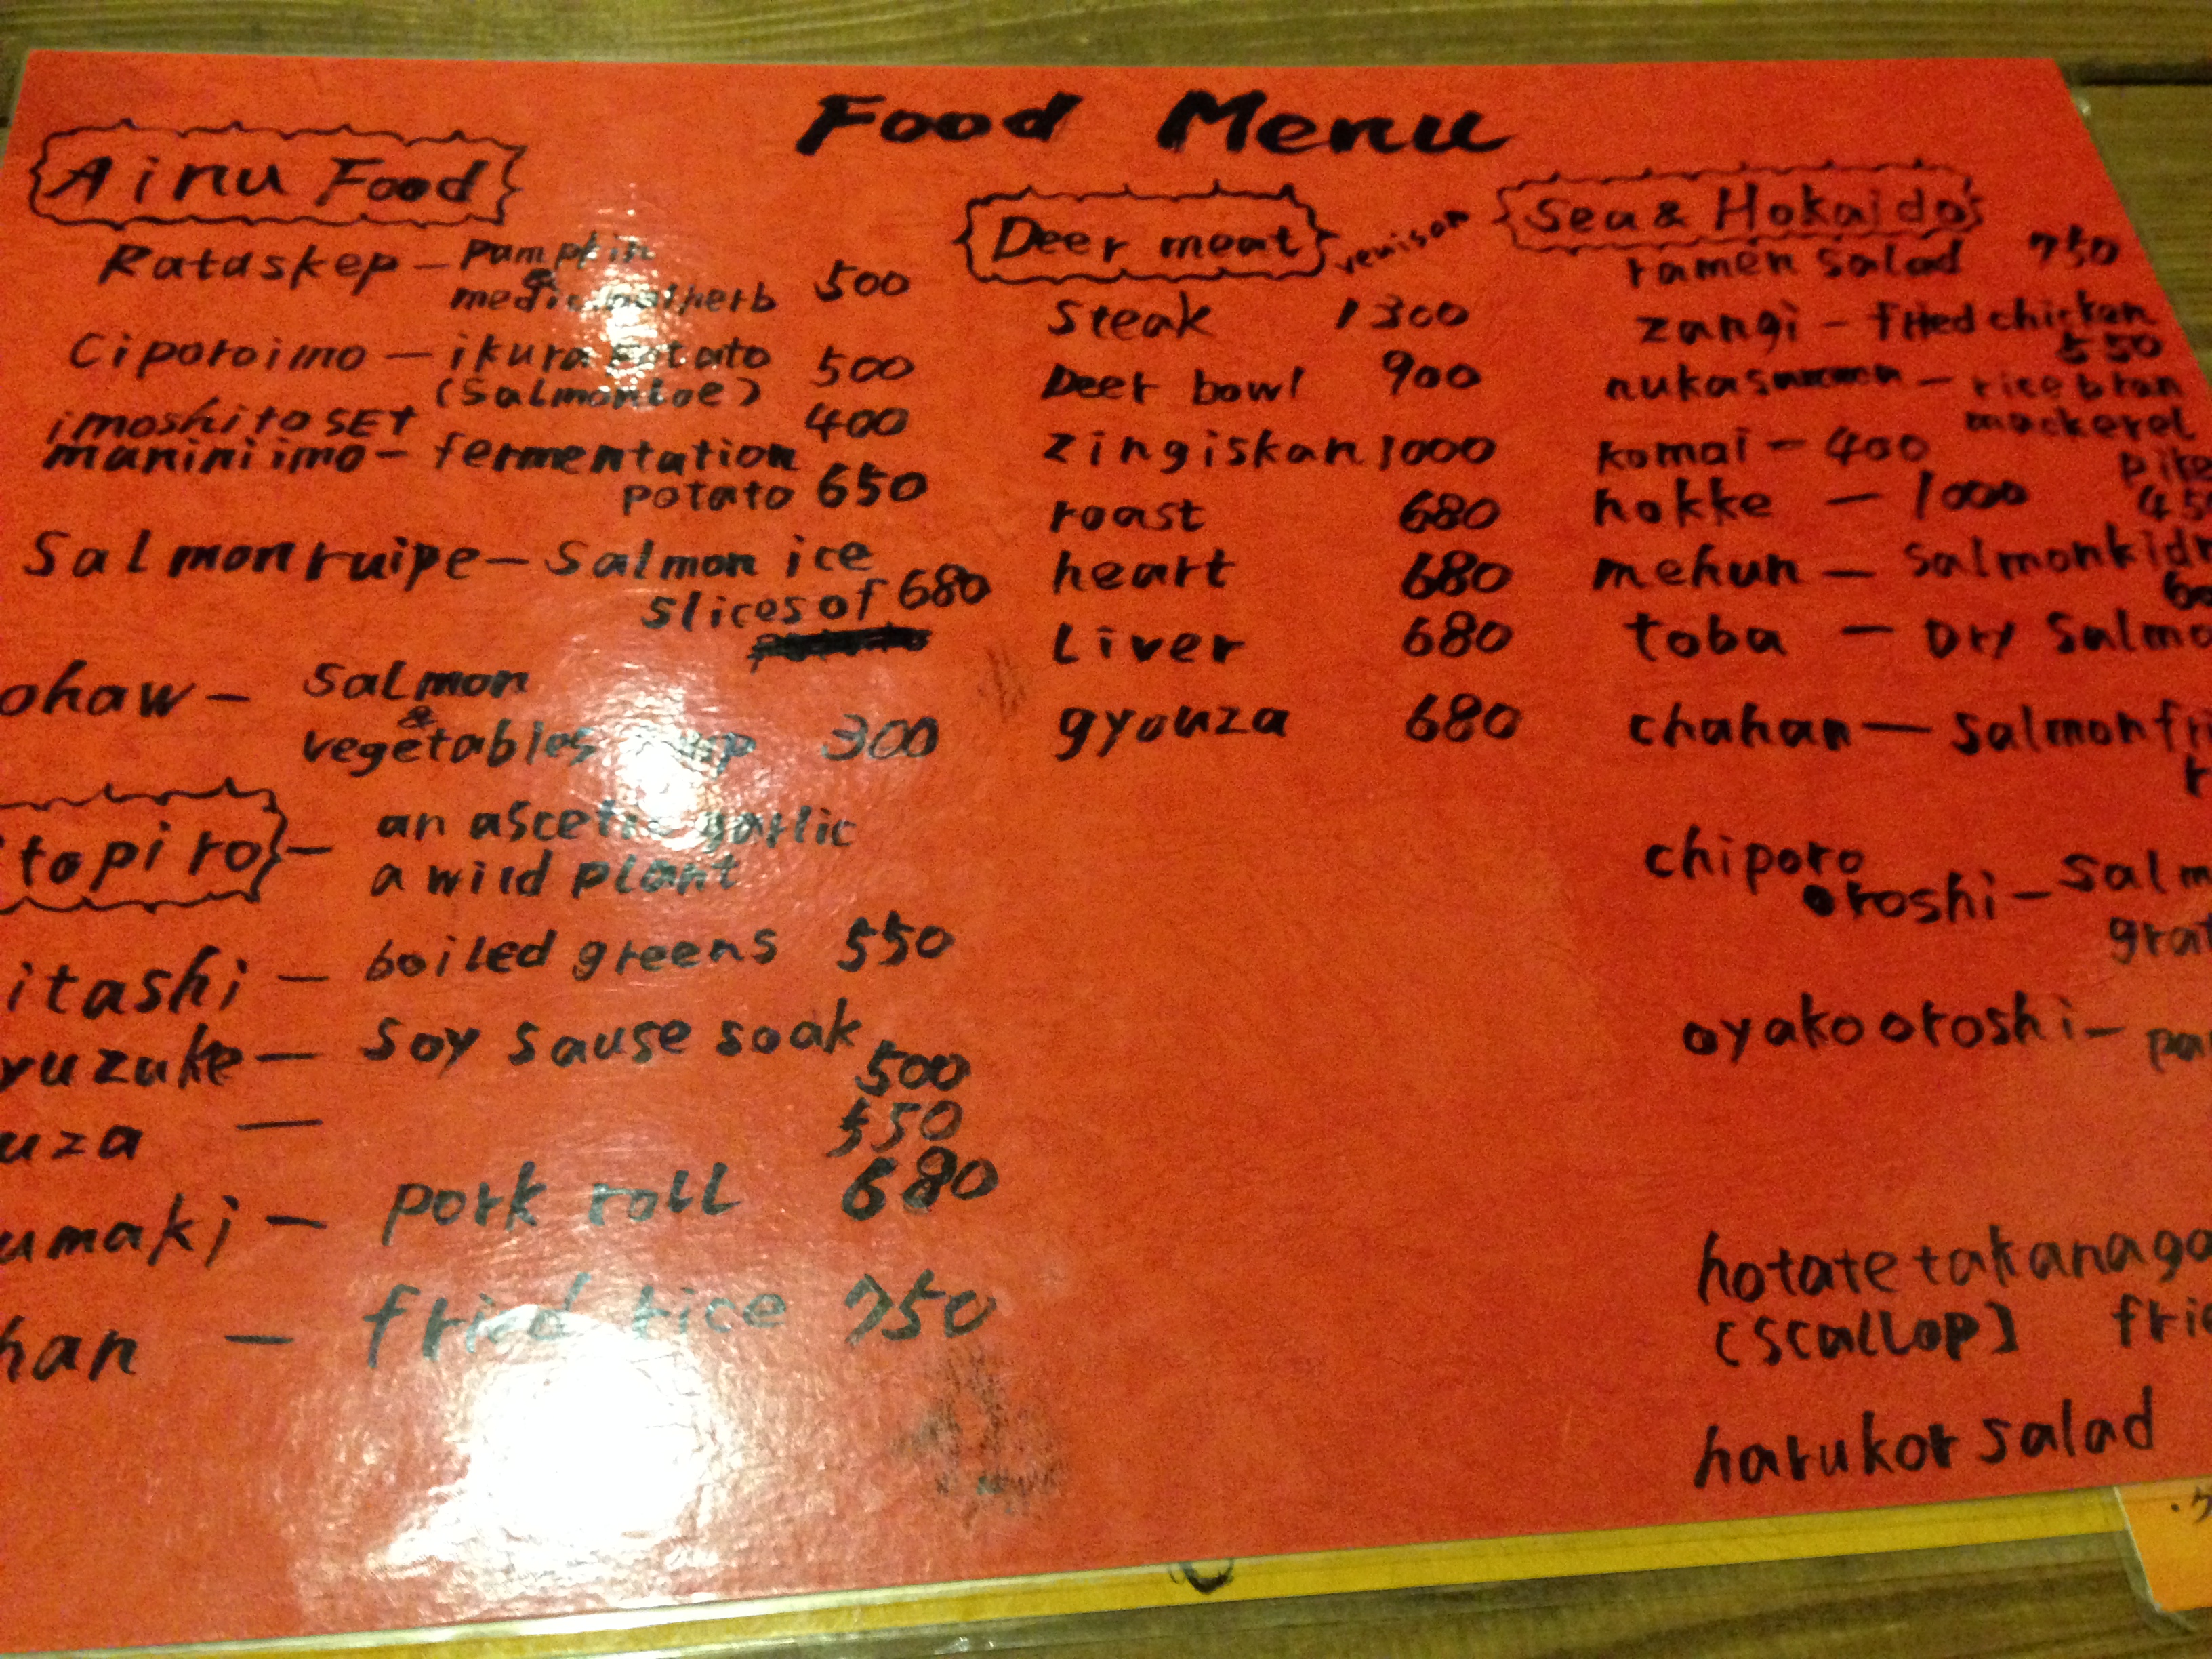 Food Menu
Ainu Food
Rataskep - pumpkin
& medicinal herb 500
Ciporoimo - ikura potato 500
(salmonroe)
imoshito SET 400
maniniimo - fermentation
potato 650
Salmonruipe - Salmon ice
slices of 680
ohaw - salmon
&
vegetables soup 300
topiro - an ascetic garlic
a wild plant
itashi - boiled greens 550
yuzuke - soy sause soak
500
uza - 550
umaki - pork roll 680
han - fried rice 750
Deer meat venison
Steak 1300
Deer bowl 900
zingiskan 1000
roast 680
heart 680
Liver 680
gyouza 680
Sea & Hokaido's
ramen salad 750
zangi - fried chicken
550
- rice bran
mackerel
komai - 400
hokke - 1000
mehun -
toba - Dry
chahan -
chiporo
oroshi -
oyako oroshi -
[scallop]
harukor salad